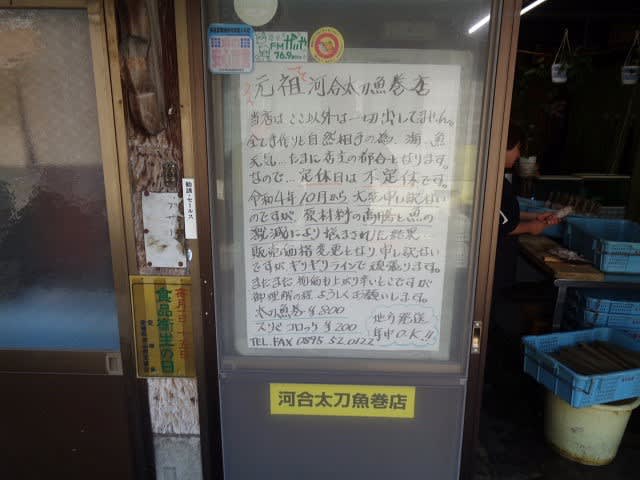 FMがいや
76.9MHz
元祖 河合太刀魚巻店
当店はここ以外は一切出してません。
全て手作りと自然相手の為、海、魚
天気…たまに店主の都合となります。
なので…定休日は不定休です。
令和4年10月から 大変申し訳ない
のですが、原材料の高騰と魚の
激減により悩まされた結果…
販売価格変更となり申し訳ない
ですが、ギリギリラインで頑張ります。
まだまだ 物価も上がり辛いとこですが
御理解の程 よろしくお願いします。
太刀魚巻 ¥800
スリミコロッケ ¥200
TEL.FAX 0895 52 0122
地方発送
年中O.K!!
勧誘・セールス
食品衛生の日
河合太刀魚巻店